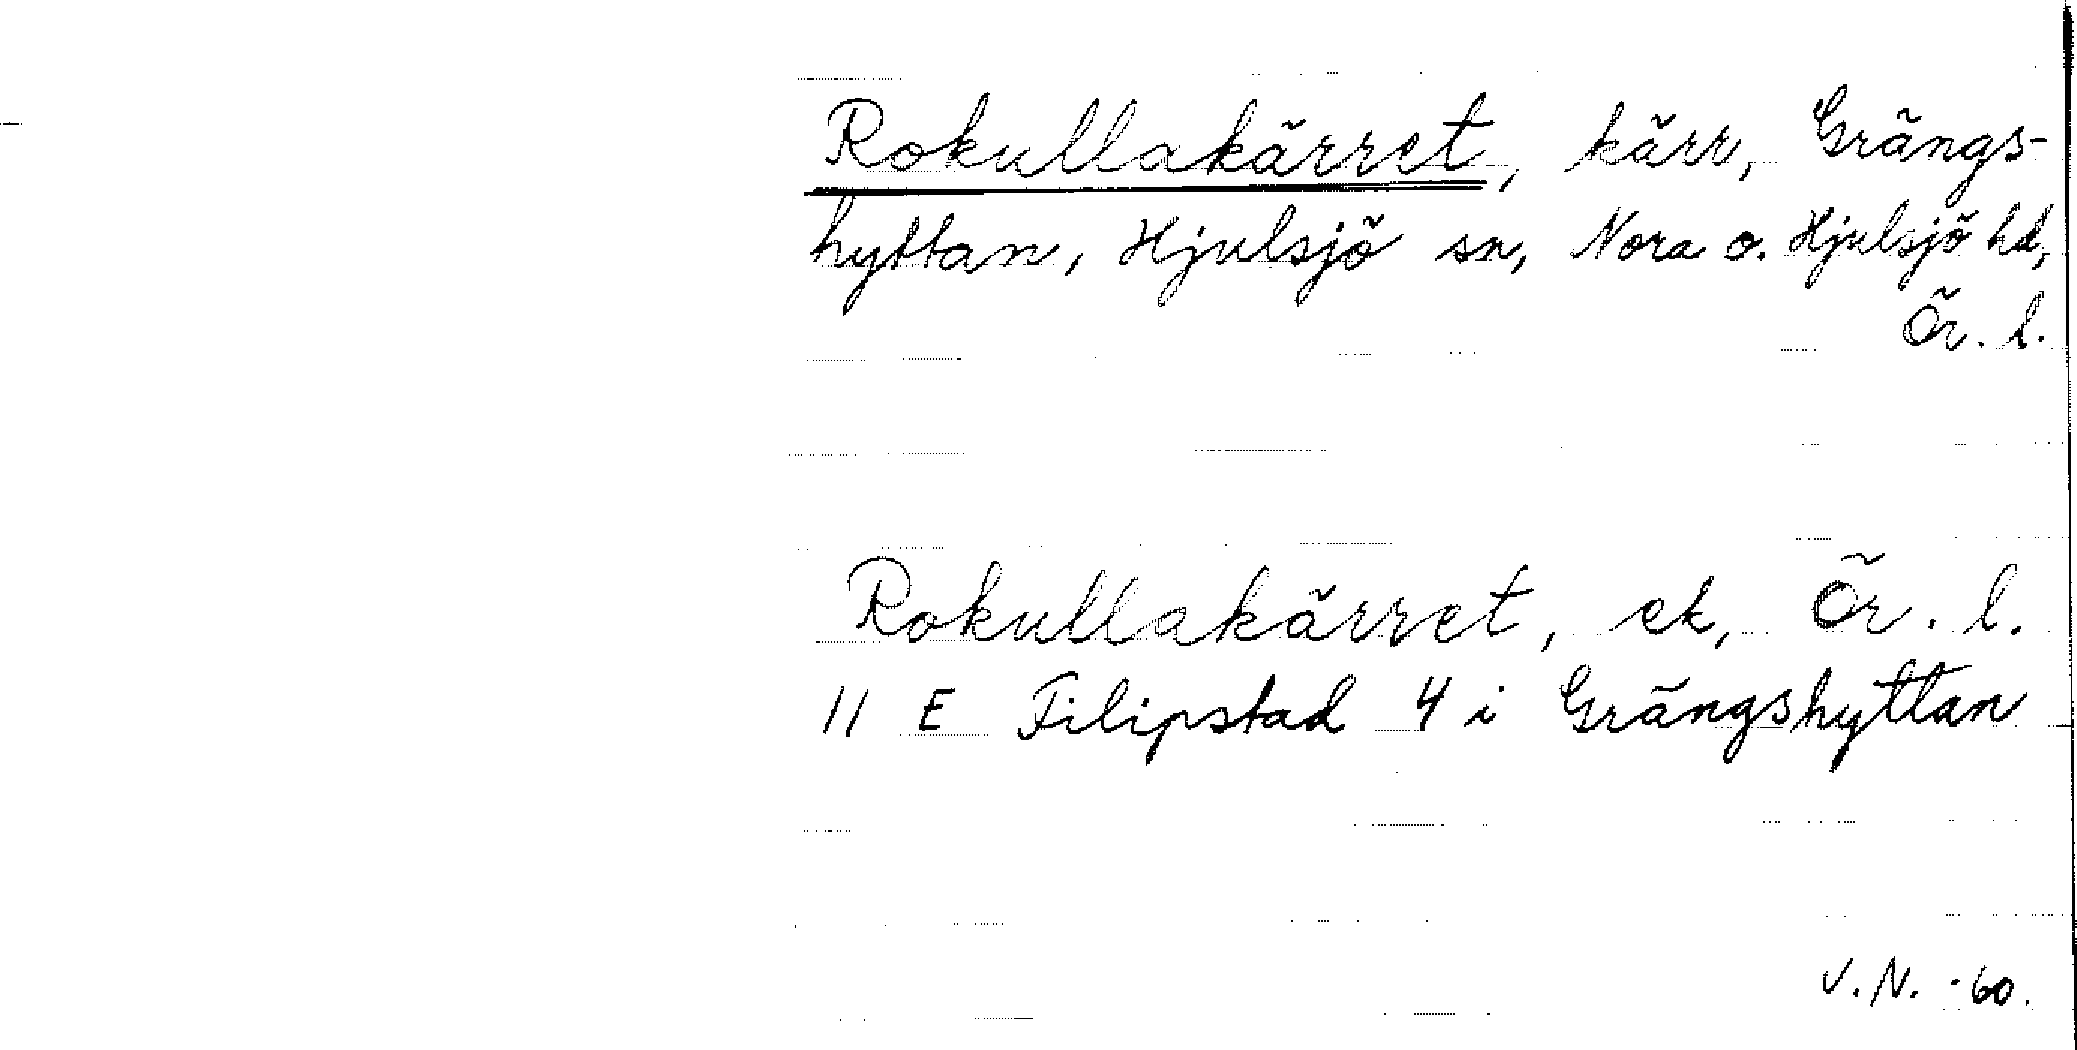 Rokullakärret, kärr, Grängs-
hyttan, Hjulsjö sn, Nora o. Hjulsjö hd,
Ör. l.
Rokullakärret, ek, Ör. l.
11 E Filipstad 4 i Grängshyttan
V.N. -60.